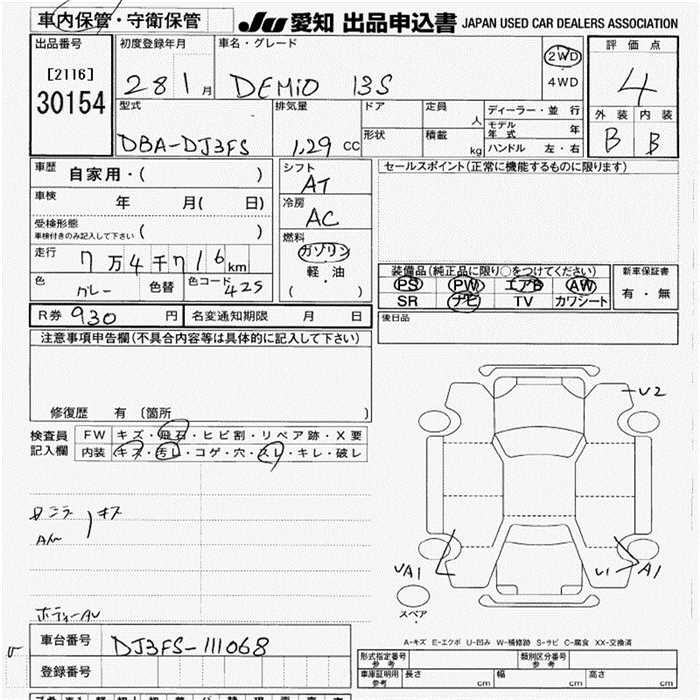 車内保管・守衛保管
JU 愛知 出品申込書 JAPAN USED CAR DEALERS ASSOCIATION
出品番号
[2116]
30154
初度登録年月
28 1月
車名・グレード
DEMIO 13S
2WD
4WD
評価点
4
外装 内装
B B
型式
DBA-DJ3FS
排気量
1.29 CC
ドア
形状
定員
人
積載
kg
ディーラー・並行
モデル年式 年
ハンドル 左・右
車歴
自家用・( )
車検
年 月( 日)
受検形態
車検付きのみ記入して下さい ( )
走行
7万4千716km
色
グレー
色替
色コード
42S
シフト
AT
冷房
AC
燃料
ガソリン
軽・油
( )
セールスポイント(正常に機能するものに限ります)
装備品(純正品に限り○をつけてください)
PS PW エアB AW
SR ナビ TV カワシート
新車保証書
有・無
後日品
R券 930 円
名変通知期限 月 日
注意事項申告欄(不具合内容等は具体的に記入して下さい)
修復歴 有 (箇所 )
検査員記入欄
FW キズ・飛石・ヒビ割・リペア跡・X要
内装 キズ・汚レ・コゲ・穴・スレ・キレ・破レ
キズ
ボディーAU
U2
UA1
U1
A1
スペア
A-キズ E-エクボ U-凹み W-補修跡 S-サビ C-腐食 XX-交換済
車台番号
DJ3FS-111068
登録番号
形式指定番号
参考
類別区分番号
参考
車庫証明用
参考
長さ cm
幅 cm
高さ cm